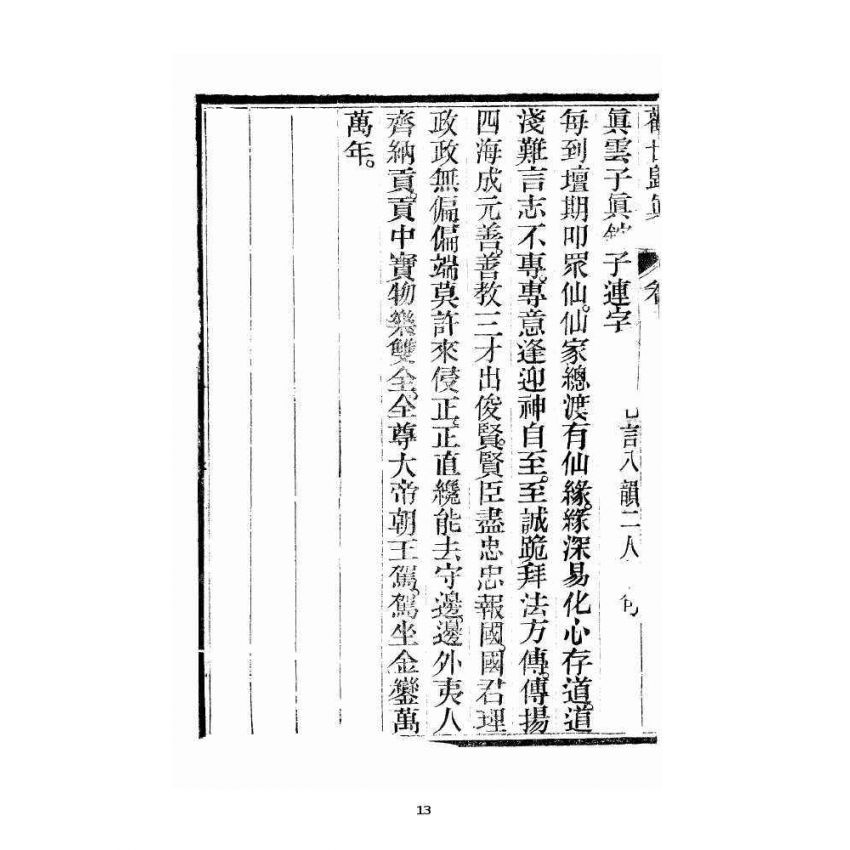 歸眞
眞雲子眞 子連字
言八韻二人 句
每到壇期叩眾仙。仙家總渡有仙緣。緣深易化心存道。道
淺難言志不專。專意逢迎神自至。至誠跪拜法方傳。傳揚
四海成元善。善教三才出俊賢。賢臣盡忠忠報國。國君理
政政無偏。偏端莫許來侵正。正直纔能去守邊。邊外夷人
齊納貢。貢中寶物樂雙全。全尊大帝朝王駕。駕坐金鑾萬
萬年。
13